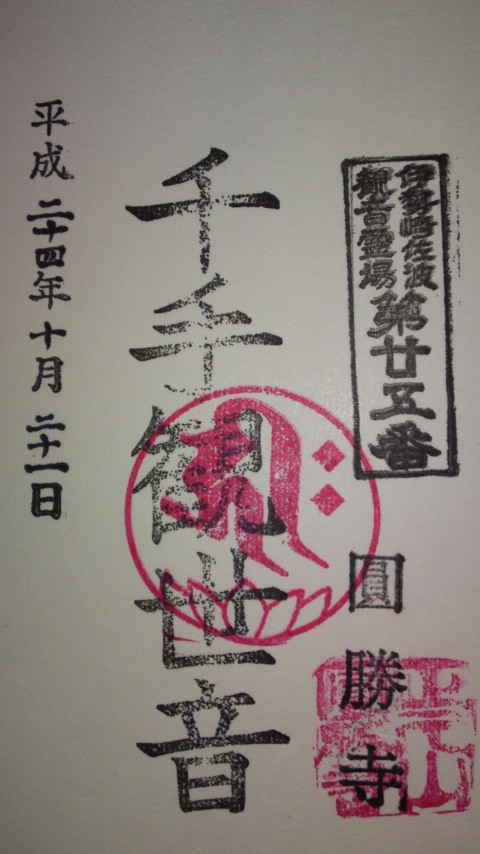 伊勢崎佐波
観音霊場
第廿五番
圓勝寺
千手観世音
平成二十四年十月二十一日